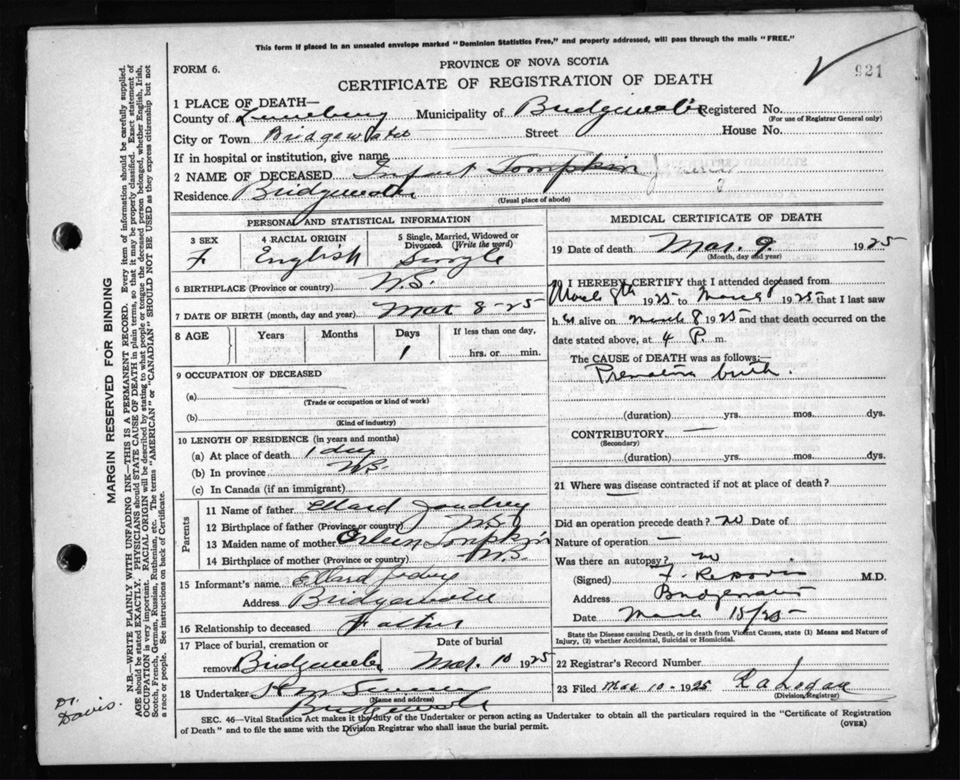 This form if placed in an unsealed envelope marked "Dominion Statistics Free," and properly addressed, will pass through the mails "FREE."
PROVINCE OF NOVA SCOTIA
FORM 6.
CERTIFICATE OF REGISTRATION OF DEATH
921
1 PLACE OF DEATH—
County of Lunenburg Municipality of Bridgewater Registered No.
(For use of Registrar General only)
City or Town Bridgewater Street House No.
If in hospital or institution, give name
2 NAME OF DECEASED Infant Tompkin
Residence Bridgewater
(Usual place of abode)
PERSONAL AND STATISTICAL INFORMATION
3 SEX 4 RACIAL ORIGIN 5 Single, Married, Widowed or Divorced (Write the word)
F English Single
6 BIRTHPLACE (Province or country) N.S.
7 DATE OF BIRTH (month, day and year) Mar 8-25
8 AGE Years Months Days If less than one day,
1 hrs. or min.
9 OCCUPATION OF DECEASED
(a)
(Trade or occupation or kind of work)
(b)
(Kind of industry)
10 LENGTH OF RESIDENCE (in years and months)
(a) At place of death 1 day
(b) In province N.S.
(c) In Canada (if an immigrant)
Parents
11 Name of father Ellard
12 Birthplace of father (Province or country) N.S.
13 Maiden name of mother Tompkin
14 Birthplace of mother (Province or country) N.S.
15 Informant's name Ellard
Address Bridgewater
16 Relationship to deceased Father
17 Place of burial, cremation or removal Bridgewater Date of burial Mar. 10 1925
18 Undertaker
(Name and address)
Bridgewater
MEDICAL CERTIFICATE OF DEATH
19 Date of death Mar. 9. 1925
(Month, day and year)
20 I HEREBY CERTIFY that I attended deceased from
March 8th 1925 to March 1925 that I last saw
h alive on March 8 1925 and that death occurred on the
date stated above, at 4 P. m.
The CAUSE of DEATH was as follows:—
Premature birth.
(duration) yrs. mos. dys.
CONTRIBUTORY —
(Secondary)
(duration) yrs. mos. dys.
21 Where was disease contracted if not at place of death?
Did an operation precede death? no Date of
Nature of operation —
Was there an autopsy? no
(Signed) M.D.
Address Bridgewater
Date March 15/25
State the Disease causing Death, or in death from Violent Causes, state (1) Means and Nature of
Injury, (2) whether Accidental, Suicidal or Homicidal.
22 Registrar's Record Number
23 Filed Mar 10 - 1925
(Division Registrar)
SEC. 46—Vital Statistics Act makes it the duty of the Undertaker or person acting as Undertaker to obtain all the particulars required in the "Certificate of Registration
of Death" and to file the same with the Division Registrar who shall issue the burial permit.
(OVER)
MARGIN RESERVED FOR BINDING
N.B.—WRITE PLAINLY WITH UNFADING INK—THIS IS A PERMANENT RECORD. Every item of information should be carefully supplied.
AGE should be stated EXACTLY. PHYSICIANS should STATE CAUSE OF DEATH in plain terms, so that it may be properly classified. Exact statement of
OCCUPATION is very important. RACIAL ORIGIN will be described by stating to what people or tongue the deceased person belonged, whether English, Irish,
Scotch, French, German, Russian, Ruthenian, etc. The terms "AMERICAN" or "CANADIAN" SHOULD NOT BE USED as they express citizenship but not
a race or people. See instructions on back of Certificate.
Dr.
Davis.